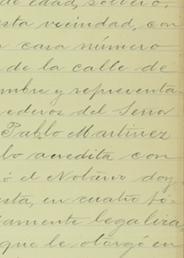 de edad, soltero,
sta vecindad, con
casa número
de la calle de
mbre y representa-
ederos del Señor
Pablo Martinez
bo acredita con
ó el Notario doy
sta, en cuatro fo-
amente legaliza
que le otorgó en